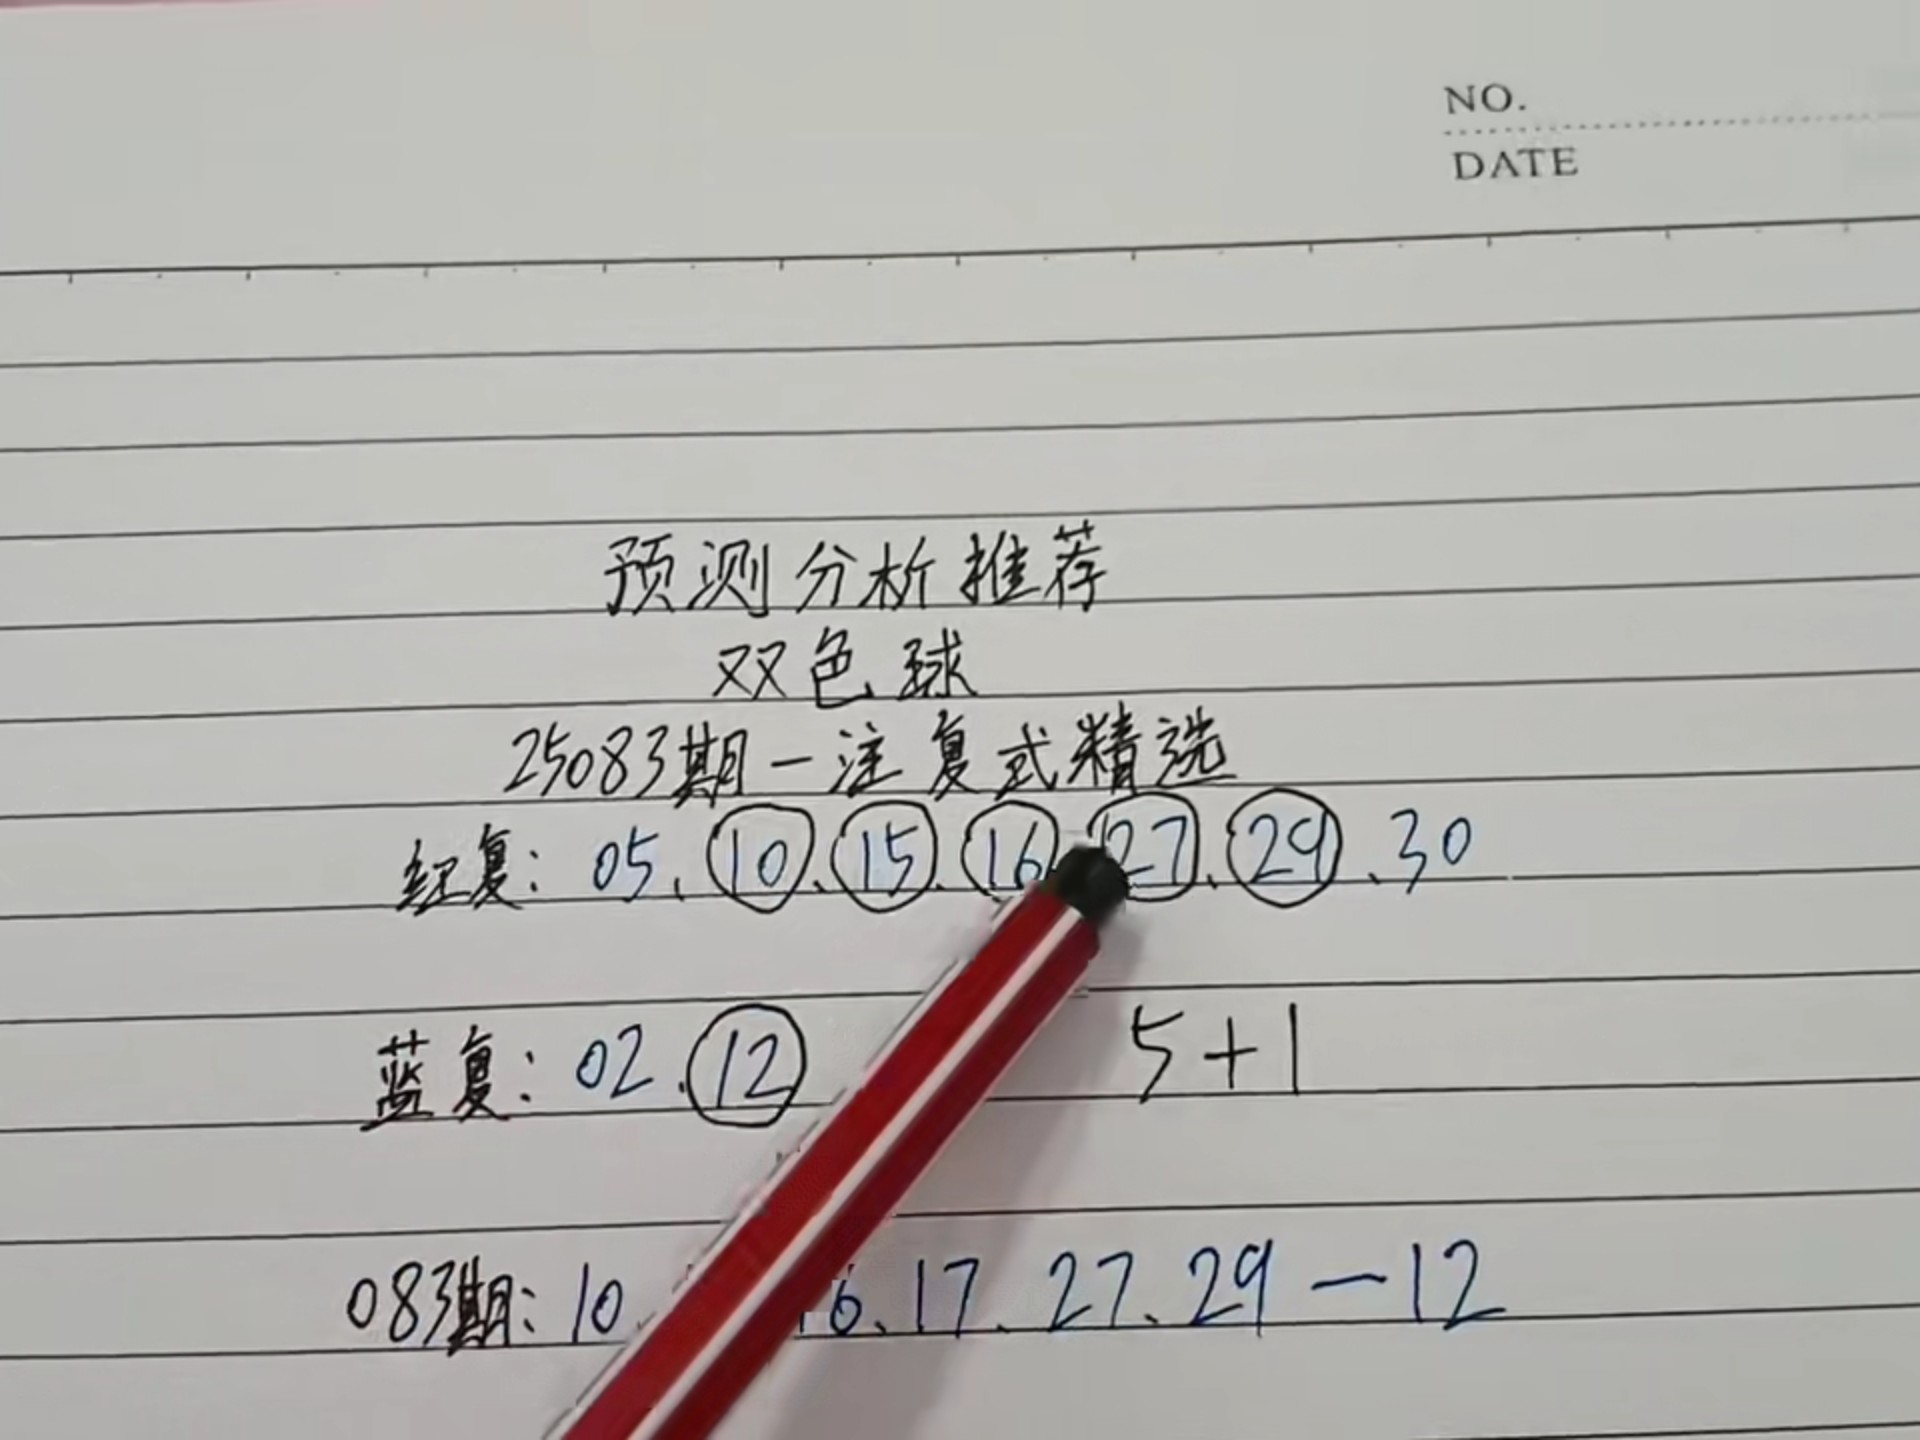 NO.
DATE
预测分析推荐
双色球
25083期一注复式精选
红复: 05、10、15、16 27、29、30
蓝复: 02、12 5+1
083期: 10 6、17、27、29—12